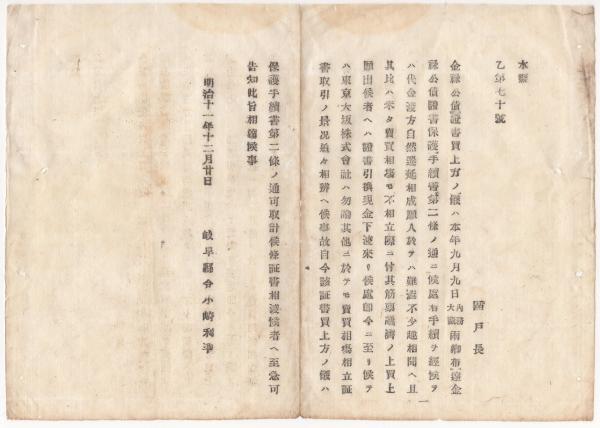 本縣
乙第七十號
區戸長
金祿公債證書買上方ノ儀ハ本年九月九日内務大藏兩卿布達金
祿公債證書保護手續書第二條ノ通ニ候處右手續ヲ經候テ
ハ代金渡方自然遷延相成願人於テハ難澁不少趣相聞ヘ且
其比ハ未タ賣買相塲モ不相立際ニ付其筋稟議濟ノ上買上
願出候者ヘハ證書引換現金下渡來リ候處即今ニ至リ候テ
ハ東京大坂株式會社ハ勿論其他ニ於テモ賣買相塲相立証
書取引ノ景况追々相辨ヘ候事故自今該証書買上方ノ儀ハ
保護手續書第二條ノ通可取計候條証書相渡候者ヘ至急可
告知此旨相達候事
明治十一年十二月廿日
岐阜縣令小崎利準